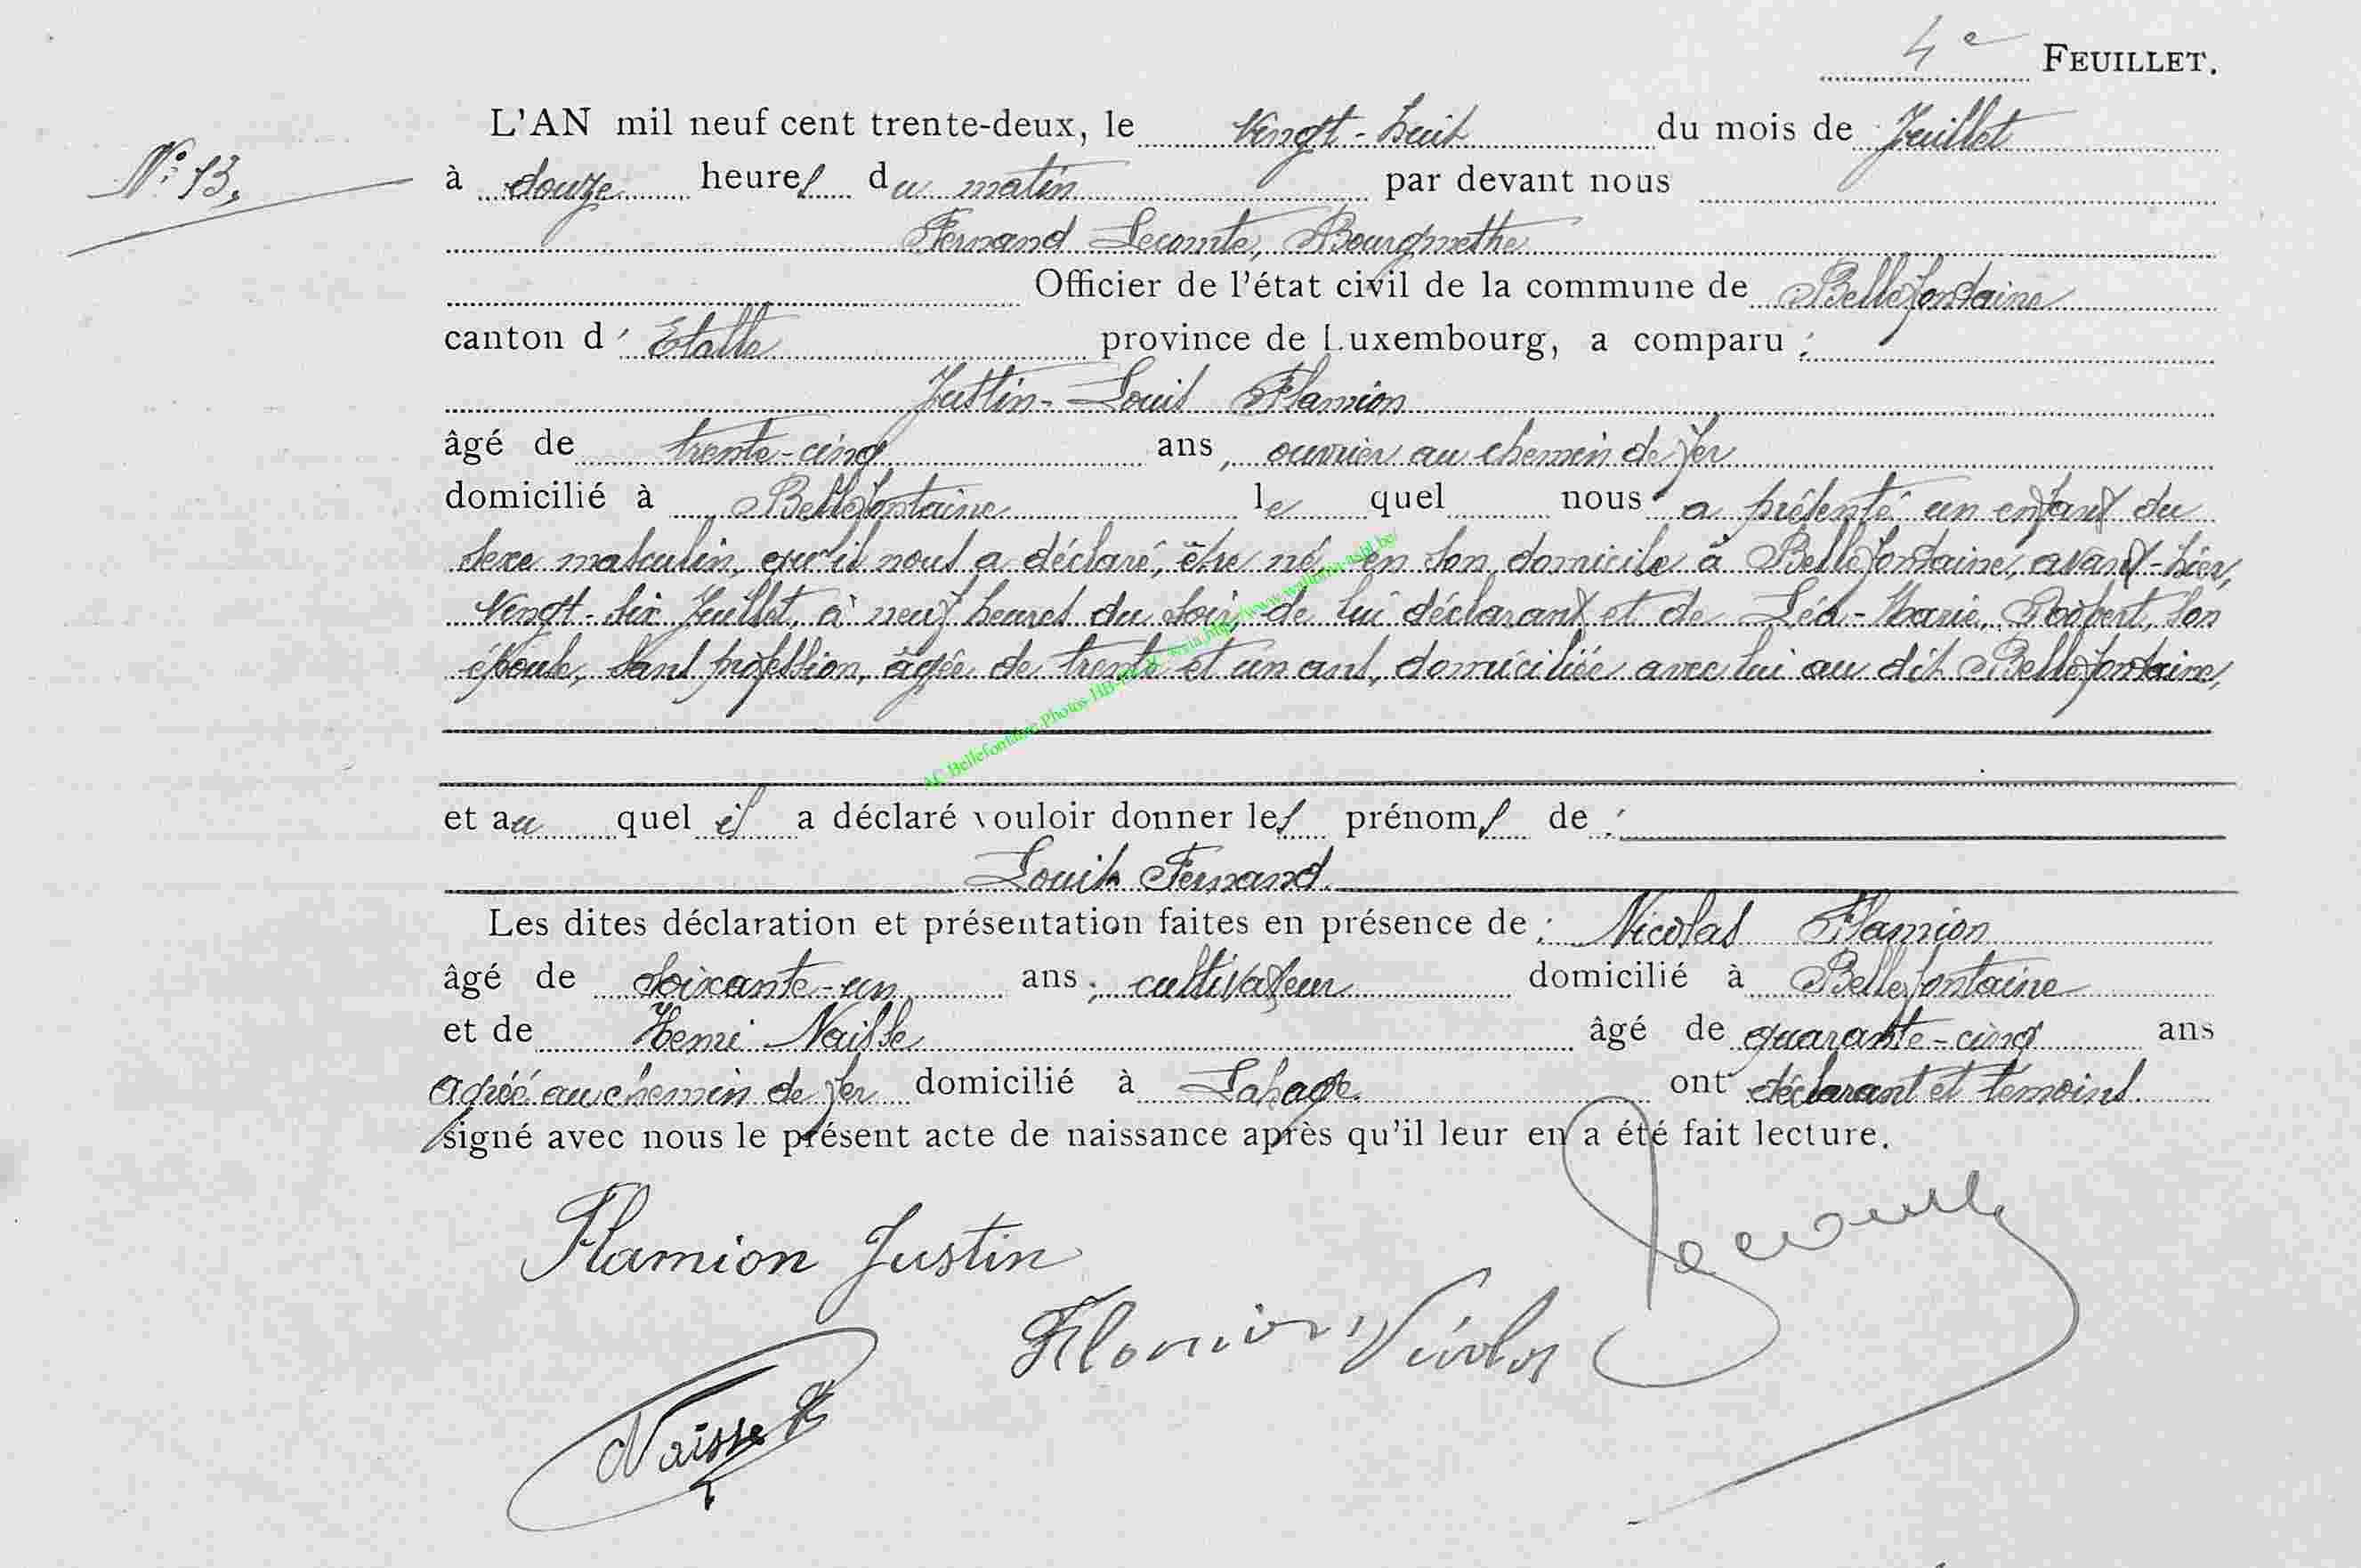 4e FEUILLET.
L'AN mil neuf cent trente-deux, le vingt-huit du mois de Juillet
N° 13.
à douze heures du matin par devant nous
Fernand Lecomte, Bourgmethe
Officier de l'état civil de la commune de Bellefontaine
canton d'Etalle province de Luxembourg, a comparu :
Justin-Louis Flamion
âgé de trente-cinq ans, ouvrier au chemin de fer
domicilié à Bellefontaine lequel nous a présenté un enfant du
sexe masculin, qu'il nous a déclaré, être né, en son domicile à Bellefontaine, avant-hier,
vingt-six Juillet, à neuf heures du soir, de lui déclarant et de Léa-Marie, son
épouse, sans profession, âgée de trente et un ans, domiciliée avec lui au dit Bellefontaine,
et auquel il a déclaré vouloir donner les prénoms de :
Louis Fernand.
Les dites déclaration et présentation faites en présence de : Nicolas Flamion
âgé de soixante-un ans, cultivateur domicilié à Bellefontaine
et de Henri Naisse âgé de quarante-cinq ans
agréé au chemin de fer domicilié à Lahage ont déclarant et temoins.
signé avec nous le présent acte de naissance après qu'il leur en a été fait lecture.
Flamion Justin
Lecomte
Flamion Nicolas
Naisse H